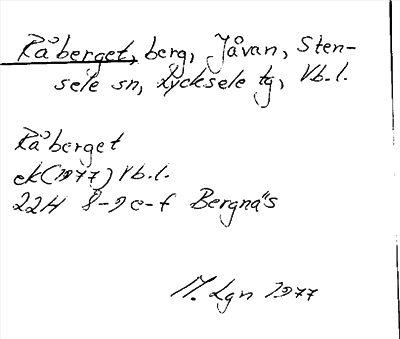 Råberget, berg, Jåvan, Sten-
sele sn, Lycksele tg, Vb.l.
Råberget
ek(1977) Vb.l.
22H 8-9 e-f Bergnäs
M. Lgn 1977